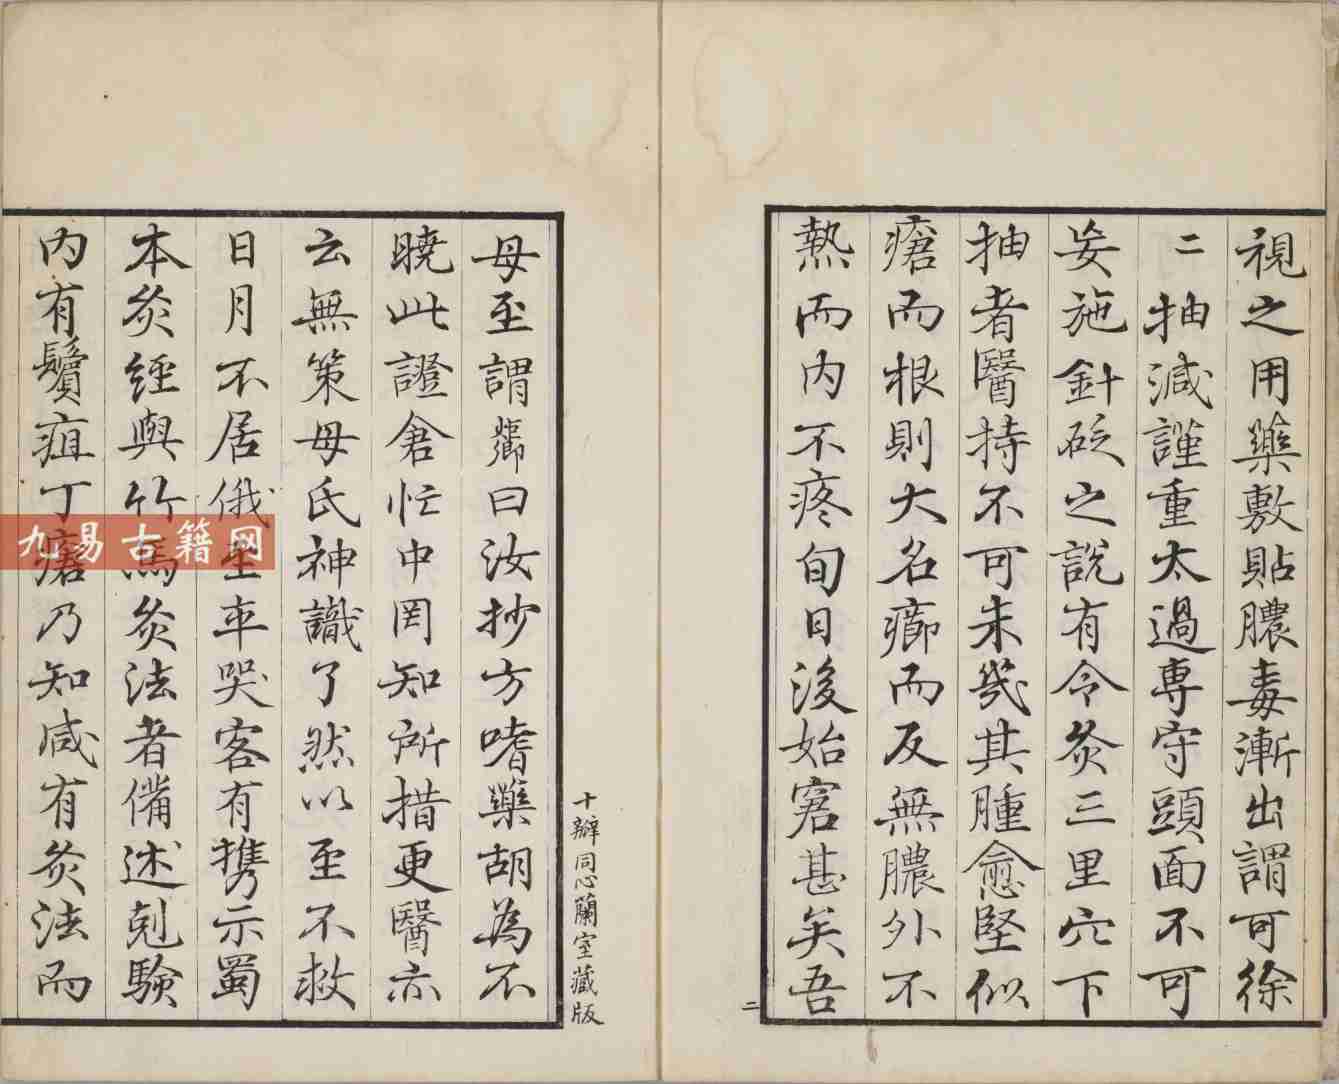 視之用藥敷貼膿毒漸出謂可徐
二抽減謹重太過専守頭面不可
妄施針砭之說有令灸三里穴下
抽者醫持不可未幾其腫愈堅似
瘡而根則大名癤而反無膿外不
熱而内不疼旬日後始窘甚矣吾
二
十瓣同心蘭室藏版
母至謂某卿曰汝抄方嗜藥胡為不
曉此證倉忙中罔知所措更醫亦
云無策母氏神識了然以至不救
日月不居俄至卒哭客有携示蜀
本灸經與竹馬灸法者備述剋驗
内有鬢疽丁瘡乃知咸有灸法而
九易古籍网